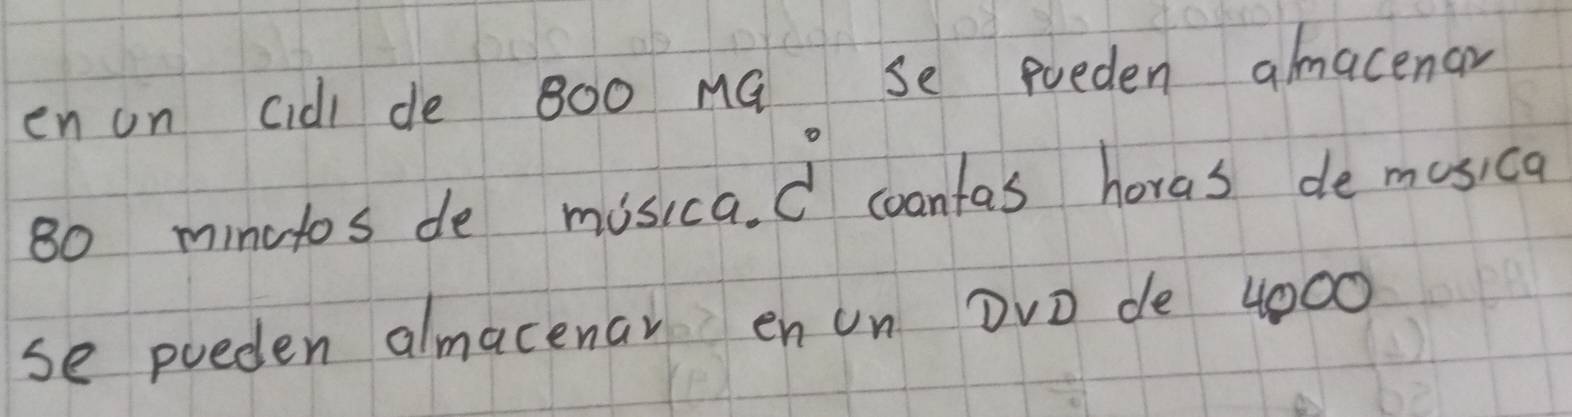 en un cidi de 800 MG se pueden almacenar
80 minutos de música. ¿ cuantas horas de musica
se pueden almacenar en un DVD de 4000